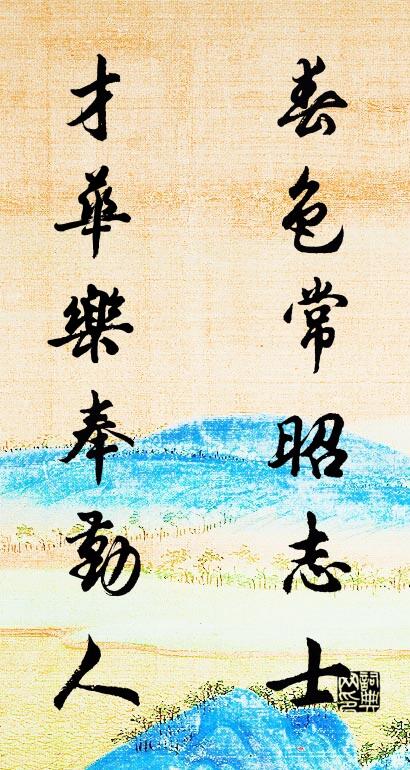 春色常昭志士
才華樂奉勤人